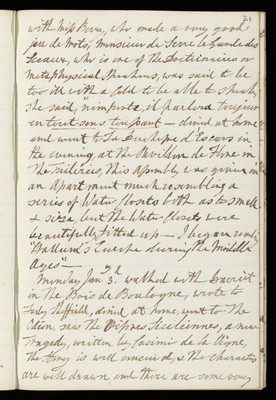 with Miss Berry, who made a very good
jeu de mots, Monsieur de Serre le Garde des
Sceaux, who is one of the Doctrinaires or
Metaphysical Speakers, was said to be
too ill with a Cold to be able to speak,
she said, n'importe, il parlera toujours
en tout sens touspant — dined at home
and went to La Duchesse d'Escars in
the evening, at the Pavillon de Flore in
the Tuileries, this Assembly was given in
an Apartment much resembling a
series of Water Closets both as to smell
& size, but the Water Closets were
beautifully fitted up — I began reading
"Hallam's Europe during the Middle
Ages" —
Monday Jan 3d. walked with Harriet
in the Bois de Boulogne, wrote to
Lady Sheffield, dined at home, went to The
Odeon, saw the Vêpres Siciliennes, a new
Tragedy, written by Casimir de la Vigne,
the Story is well conceived, & the characters
are well drawn, and there are some very